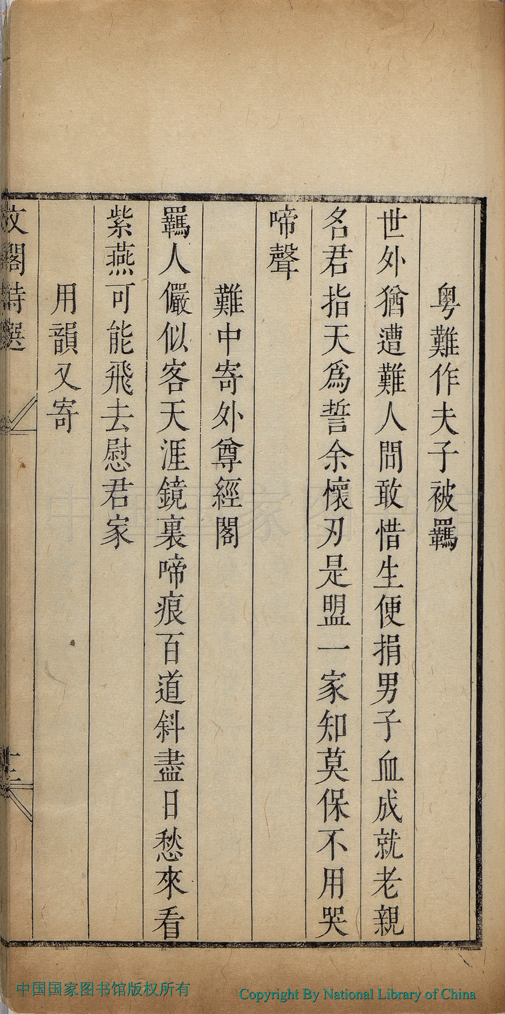 粤難作夫子被羈
世外猶遭難人間敢惜生便捐男子血成就老親
名君指天爲誓余懷刃是盟一家知莫保不用哭
啼聲
難中寄外尊經閣
羈人儼似客天涯鏡裏啼痕百道斜盡日愁來看
紫燕可能飛去慰君家
用韻又寄
文閣詩選
十二
中国国家图书馆版权所有
Copyright By National Library of China